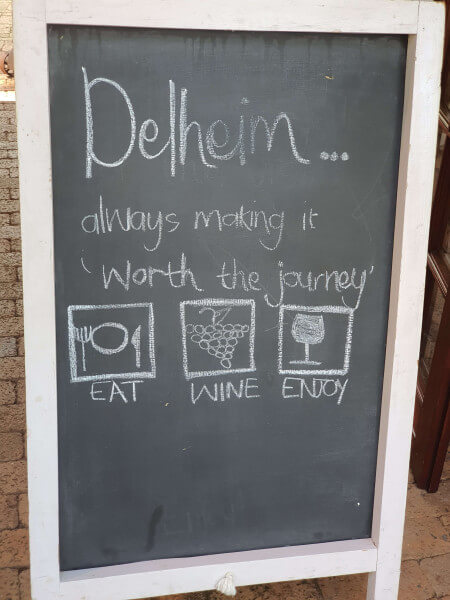 Delheim...
always making it
'worth the journey'
EAT WINE ENJOY